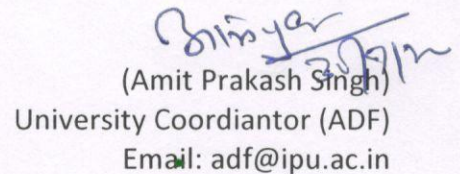 (Amit Prakash Singh)
University Coordiantor (ADF)
Email: adf@ipu.ac.in